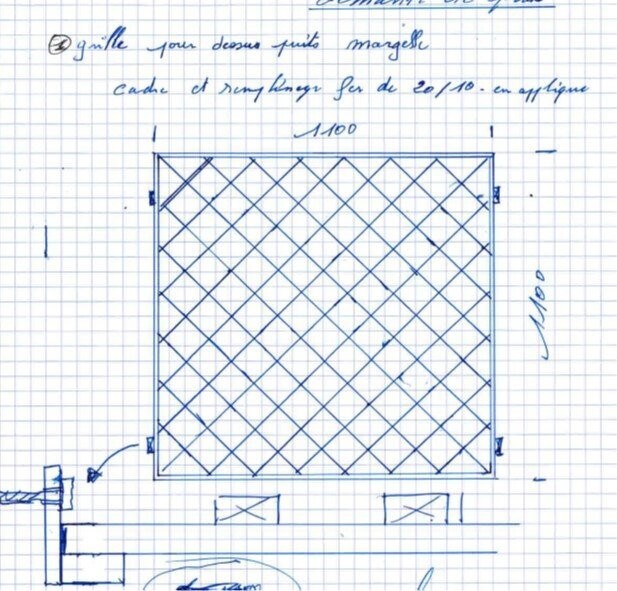 ① grille pour dessus puits margelle
cadre et remplissage fer de 20/10 - en applique
1100
1100